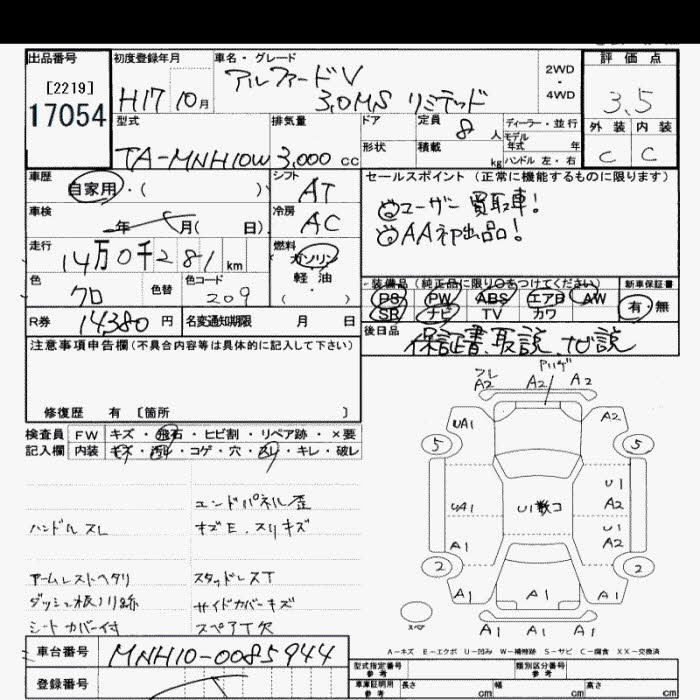 出品番号 初度登録年月 車名・グレード 評価点
[2219]
17054
H17 10月
アルファードV
3.0MS リミテッド
2WD
・
4WD
3.5
外装 内装
C C
型式 排気量 ドア 定員 8人 ディーラー・並行
モデル
年式 年
TA-MNH10W 3,000 cc 形状 積載 kg ハンドル 左・右
車歴 シフト セールスポイント(正常に機能するものに限ります)
自家用・( ) AT
ユーザー買取車!
車検 冷房
年 月( 日) AC
AA初出品!
走行 燃料
14万0千281km ガソリン
軽油
・( )
色 色替 色コード
クロ 209
装備品(純正品に限り○をつけてください) 新車保証書
PS PW ABS エアB AW
SR ナビ TV カワ
有・無
R券 14380円 名変通知期限 月 日
後日品 保証書、取説、ナビ説
注意事項申告欄(不具合内容等は具体的に記入して下さい)
修復歴 有 〔箇所 〕
検査員 FW キズ・飛石・ヒビ割・リペア跡・×要
記入欄 内装 キズ・汚れ・コゲ・穴・スレ・キレ・破レ
A2 A2 A2
UA1 A2
5 5
UA1 U1散コ U1
A2
U1
A2
A1
2 2
A1 A1
スペア
A1 A1 A1
エンドパネル歪
ハンドルスレ キズE.スリキズ
アームレストヘタリ スタッドレスT
ダッシュ板ノリ跡 サイドカバーキズ
シートカバー付 スペアT欠
A-キズ E-エクボ U-凹み W-補修跡 S-サビ C-腐食 XX-交換済
車台番号 MNH10-0085944
登録番号
型式指定番号
参考
類別区分番号
参考
車庫証明用
参考
長さ cm 幅 cm 高さ cm